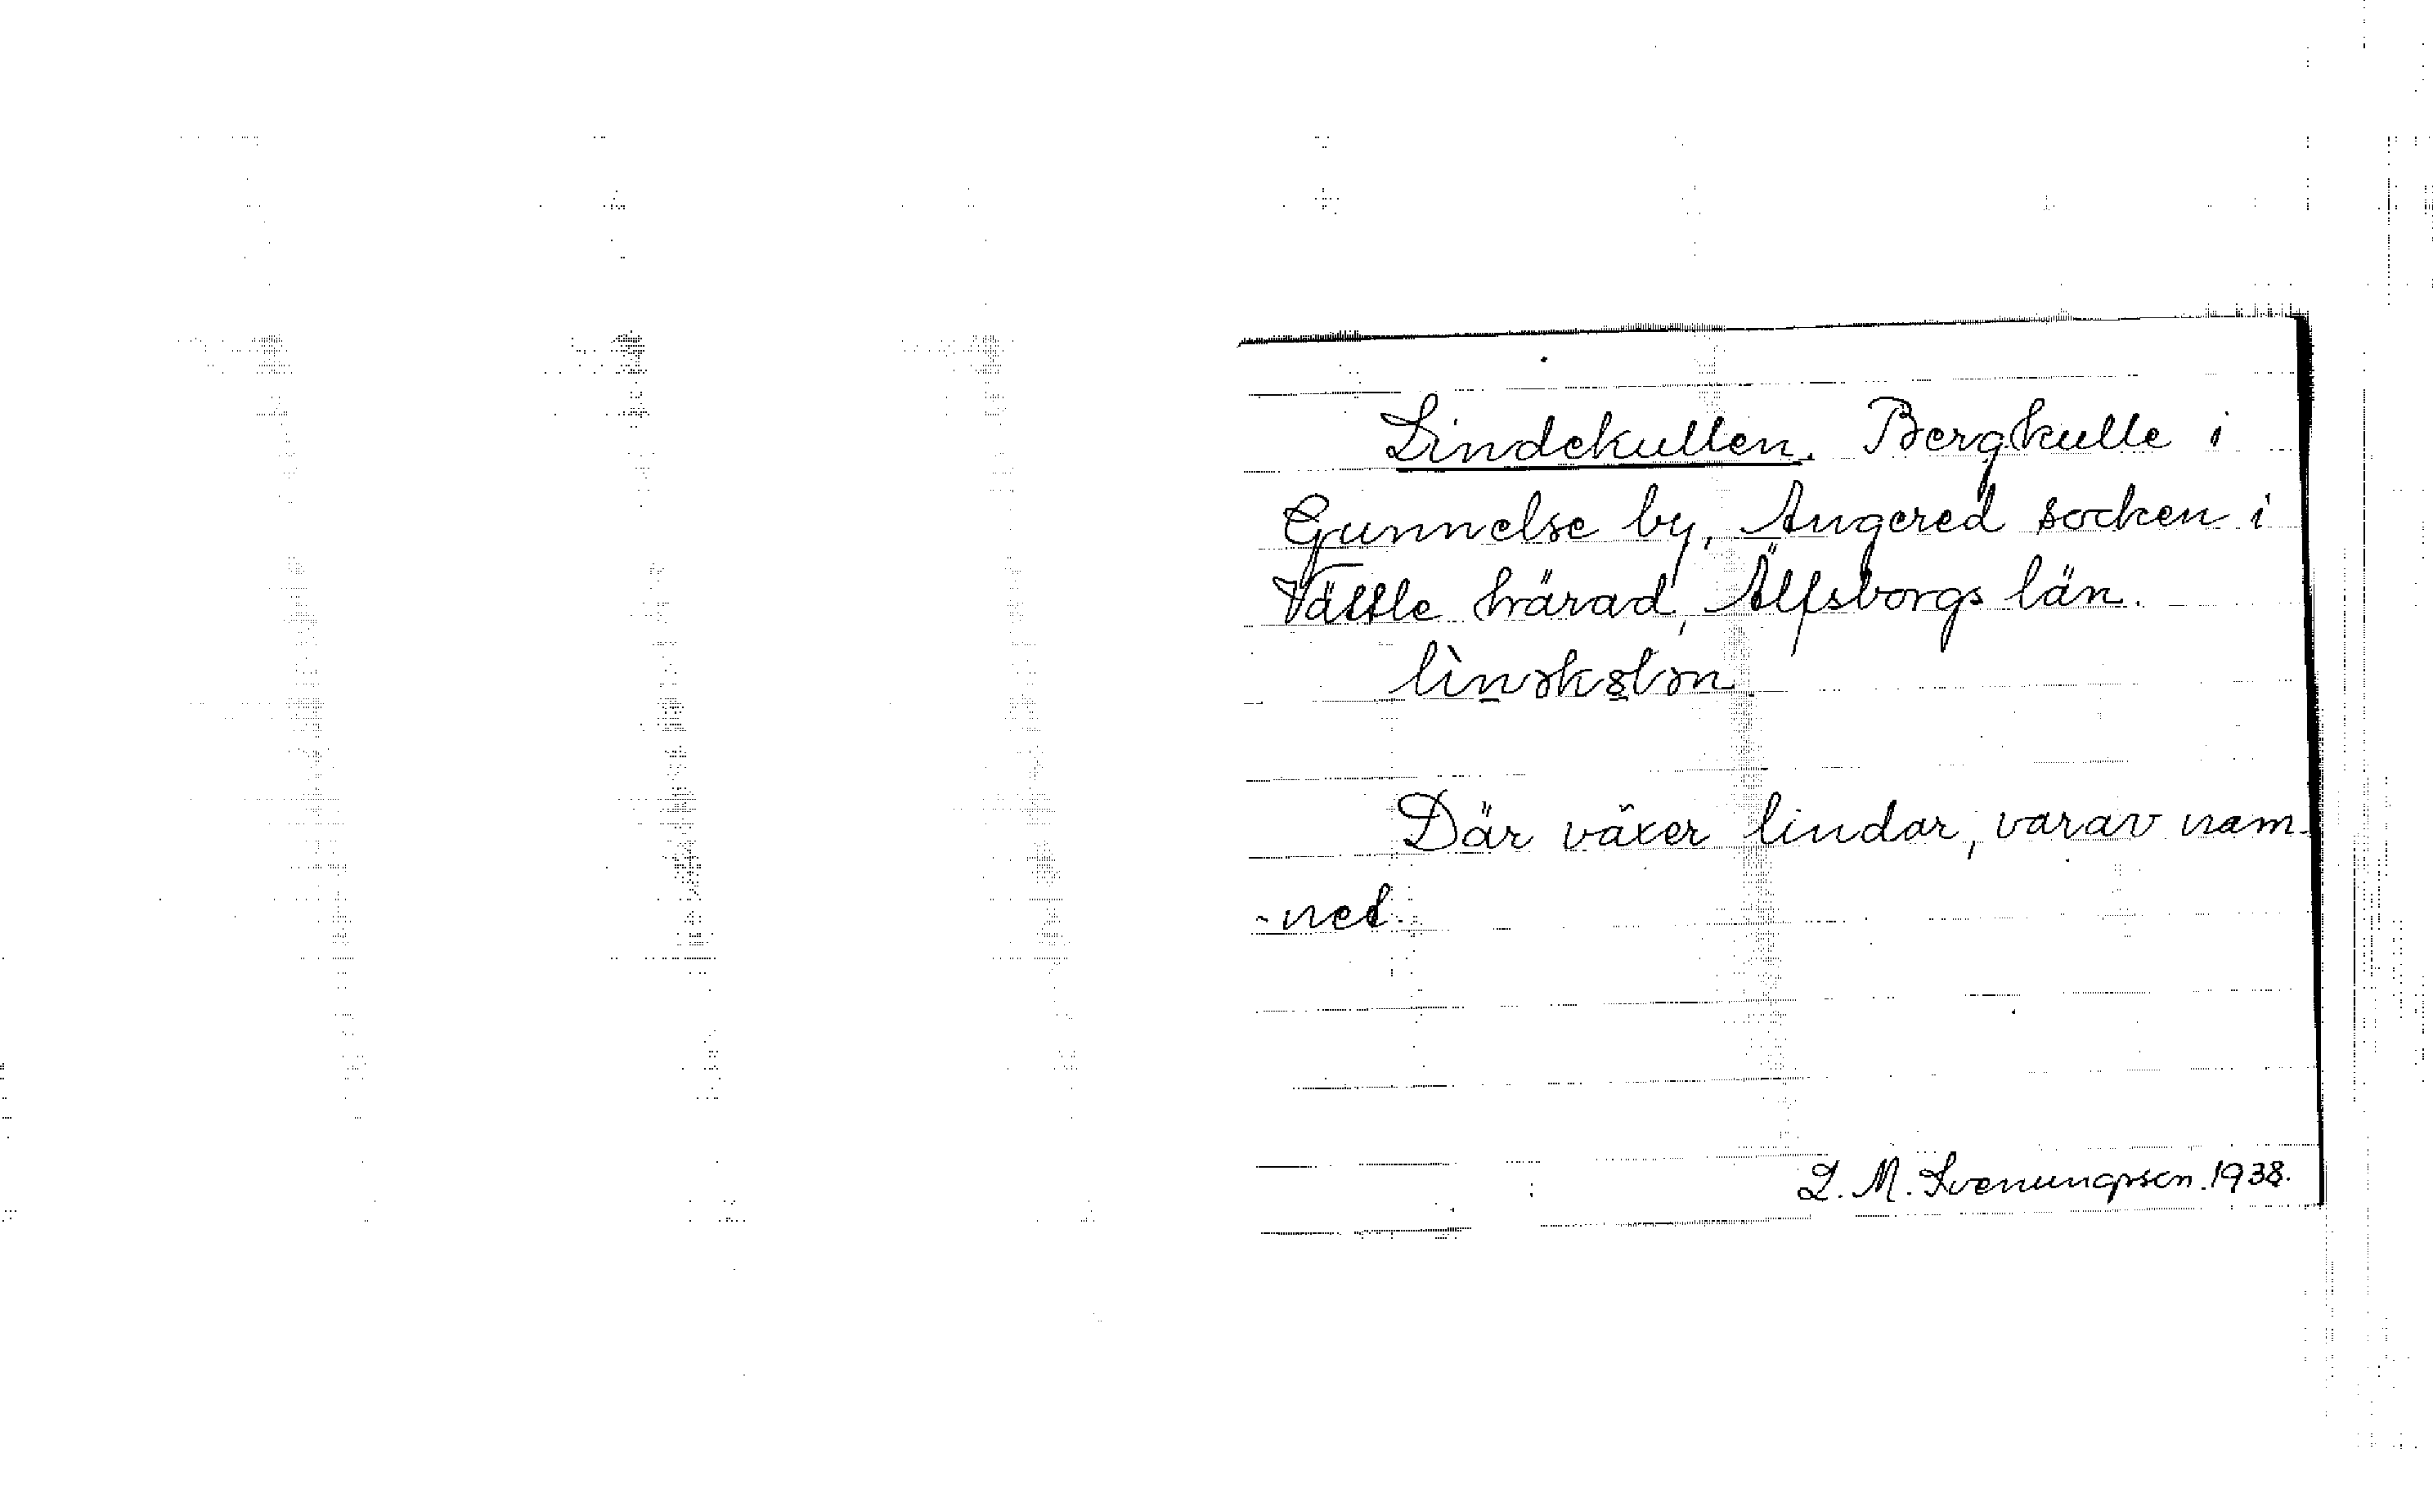 Lindekullen. Bergkulle i
Gunnelse by, Angered socken i
Vättle härad, Älfsborgs län.
Där växer lindar, varav nam-
-net.
L. M. Svenungsson. 1938.